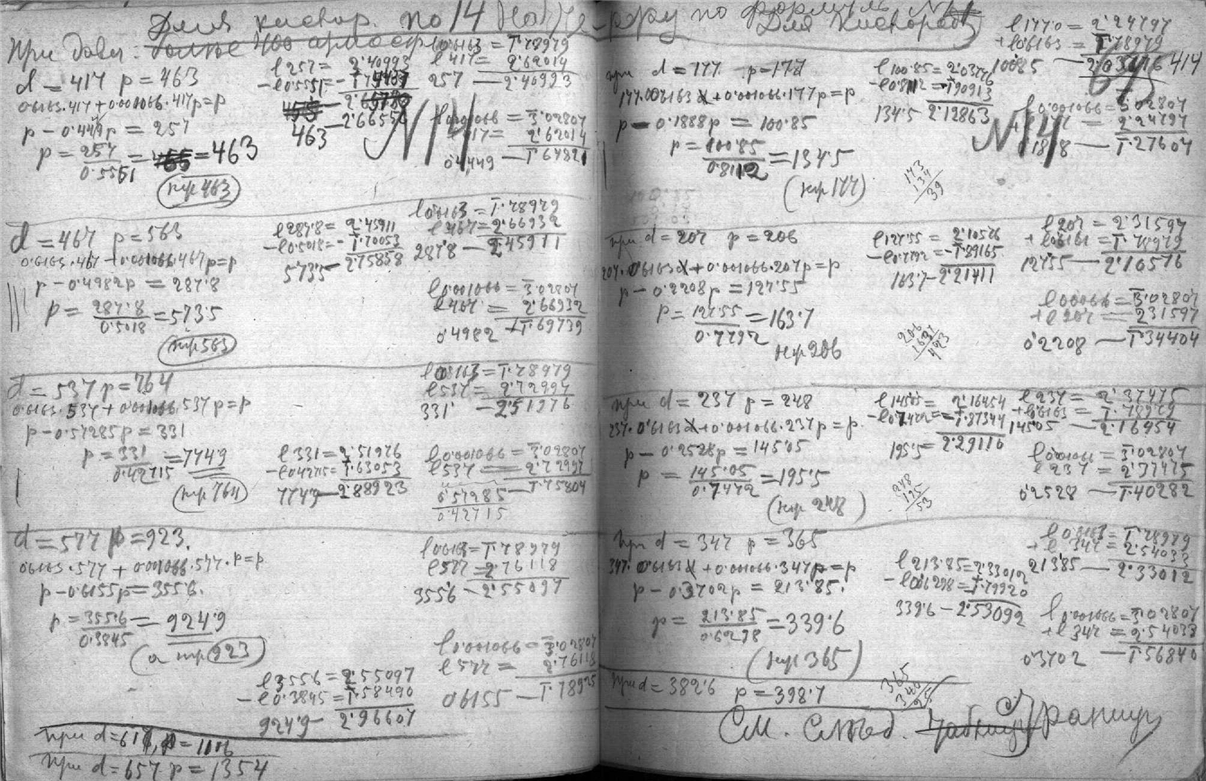 Для кислор. по 14
При давл. более 400 атмосф.
d = 417 p = 463
0.6163.417+0.001066.417p=p
p - 0.4449p = 257
p = 257/0.5551 = 463
(пр 463)
l257= 2.40993
-l0.5551= -1.74437
463 - 2.66556
l0.6163= 1.78979
l417= 2.62014
257 - 2.40993
N14
l0.001066= 3.02807
l417= 2.62014
0.4449 - 1.64821
d = 467 p = 563
0.6163.467+0.001066.467p=p
p - 0.4982p = 287.8
p = 287.8/0.5018 = 573.5
(пр 563)
l287.8= 2.45911
-l0.5018= -1.70053
573.5 2.75858
l0.6163= 1.78979
l467= 2.66932
287.8 - 2.45911
l0.001066= 3.02807
l467= 2.66932
0.4982 - 1.69739
d = 537 p = 764
0.6163.537+0.001066.537p=p
p - 0.57285p = 331
p = 331/0.42715 = 774.9
(пр 764)
l331= 2.51976
-l0.42715= 1.63053
774.9 - 2.88923
l0.6163= 1.78979
l537= 2.72997
331 - 2.51976
l0.001066= 3.02807
l537= 2.72997
0.57285 - 1.75804
0.42715
d = 577 p = 923.
0.6163.577+0.001066.577.p=p
p - 0.6155p = 355.6.
p = 355.6/0.3845 = 924.9
(а пр 923)
l355.6= 2.55097
-l0.3845= 1.58490
924.9 - 2.96607
l0.6163= 1.78979
l577= 2.76118
355.6 - 2.55097
l0.001066= 3.02807
l577= 2.76118
0.6155 - 1.78925
При d=617, p=1116
При d=657 p=1354
по формуле N14
Для Кислорода
При d = 177 p = 177
177.0.6163+0.001066.177p=p
p - 0.1888p = 100.85
p = 100.85/0.8112 = 134.5
(пр 177)
l100.85= 2.03776
-l0.8112= -1.90913
134.5 2.12863
l177.0= 2.24797
+l0.6163= 1.78979
N14
l0.001066= 3.02807
2.24797
- 1.27604
При d = 207 p = 206
207.0.6163+0.001066.207p=p
p - 0.2208p = 127.55
p = 127.55/0.7792 = 163.7
пр 206
l127.55= 2.10576
-l0.7792= -1.89165
163.7 - 2.21411
l207= 2.31597
+l0.6163= 1.78979
127.55 - 2.10576
l0.001066= 3.02807
+l207= 2.31597
0.2208 - 1.34404
При d = 237 p = 248
237.0.6163+0.001066.237p=p.
p - 0.2528p = 145.05
p = 145.05/0.7472 = 195.5
(пр 248)
l145.05= 2.16454
-l0.7472= -1.87344
195.5 = 2.29110
l237= 2.37475
+l0.6163= 1.78979
145.05 - 2.16454
l0.001066= 3.02807
l237= 2.37475
0.2528 - 1.40282
При d = 347 p = 365
347.0.6163+0.001066.347p=p
p - 0.3702p = 213.85.
p = 213.85/0.6298 = 339.6
(пр 365)
l213.85= 2.33012
-l0.6298= 1.79920
339.6 - 2.53092
l0.6163= 1.78979
+l347= 2.54033
213.85 - 2.33012
l0.001066= 3.02807
+l347= 2.54033
0.3702 - 1.56840
При d = 382.6 p = 398.7
См. след. Страницу